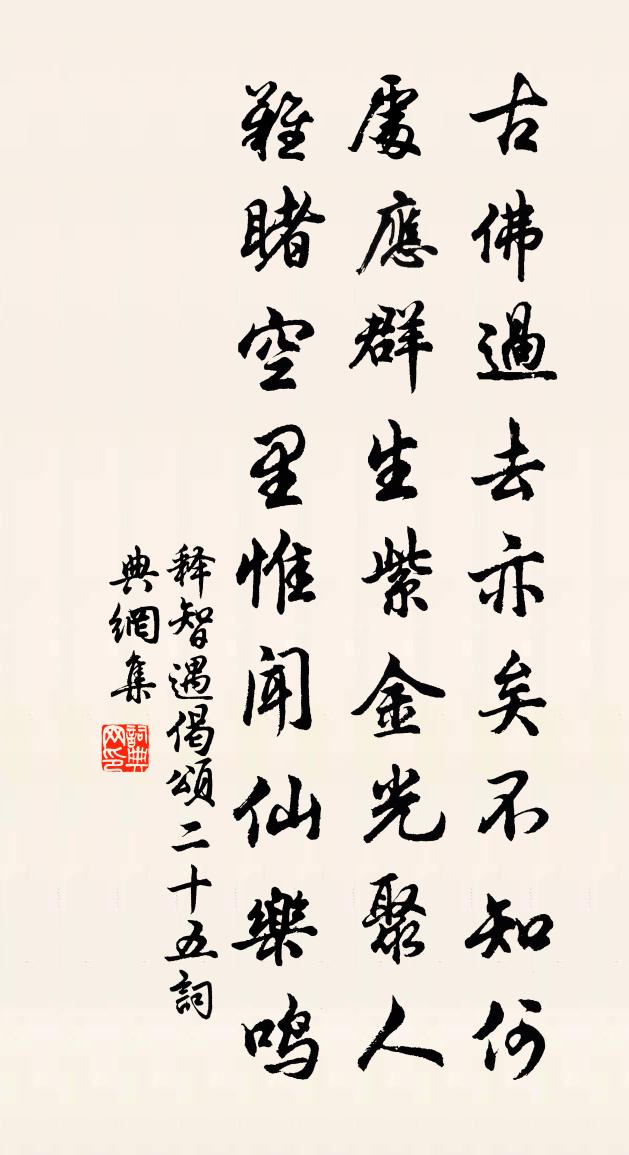 古佛過去亦矣不知何
處應群生紫金光聚人
難睹空里惟聞仙樂鸣
释智遇偈頌二十五詞
典網集
詞典网印